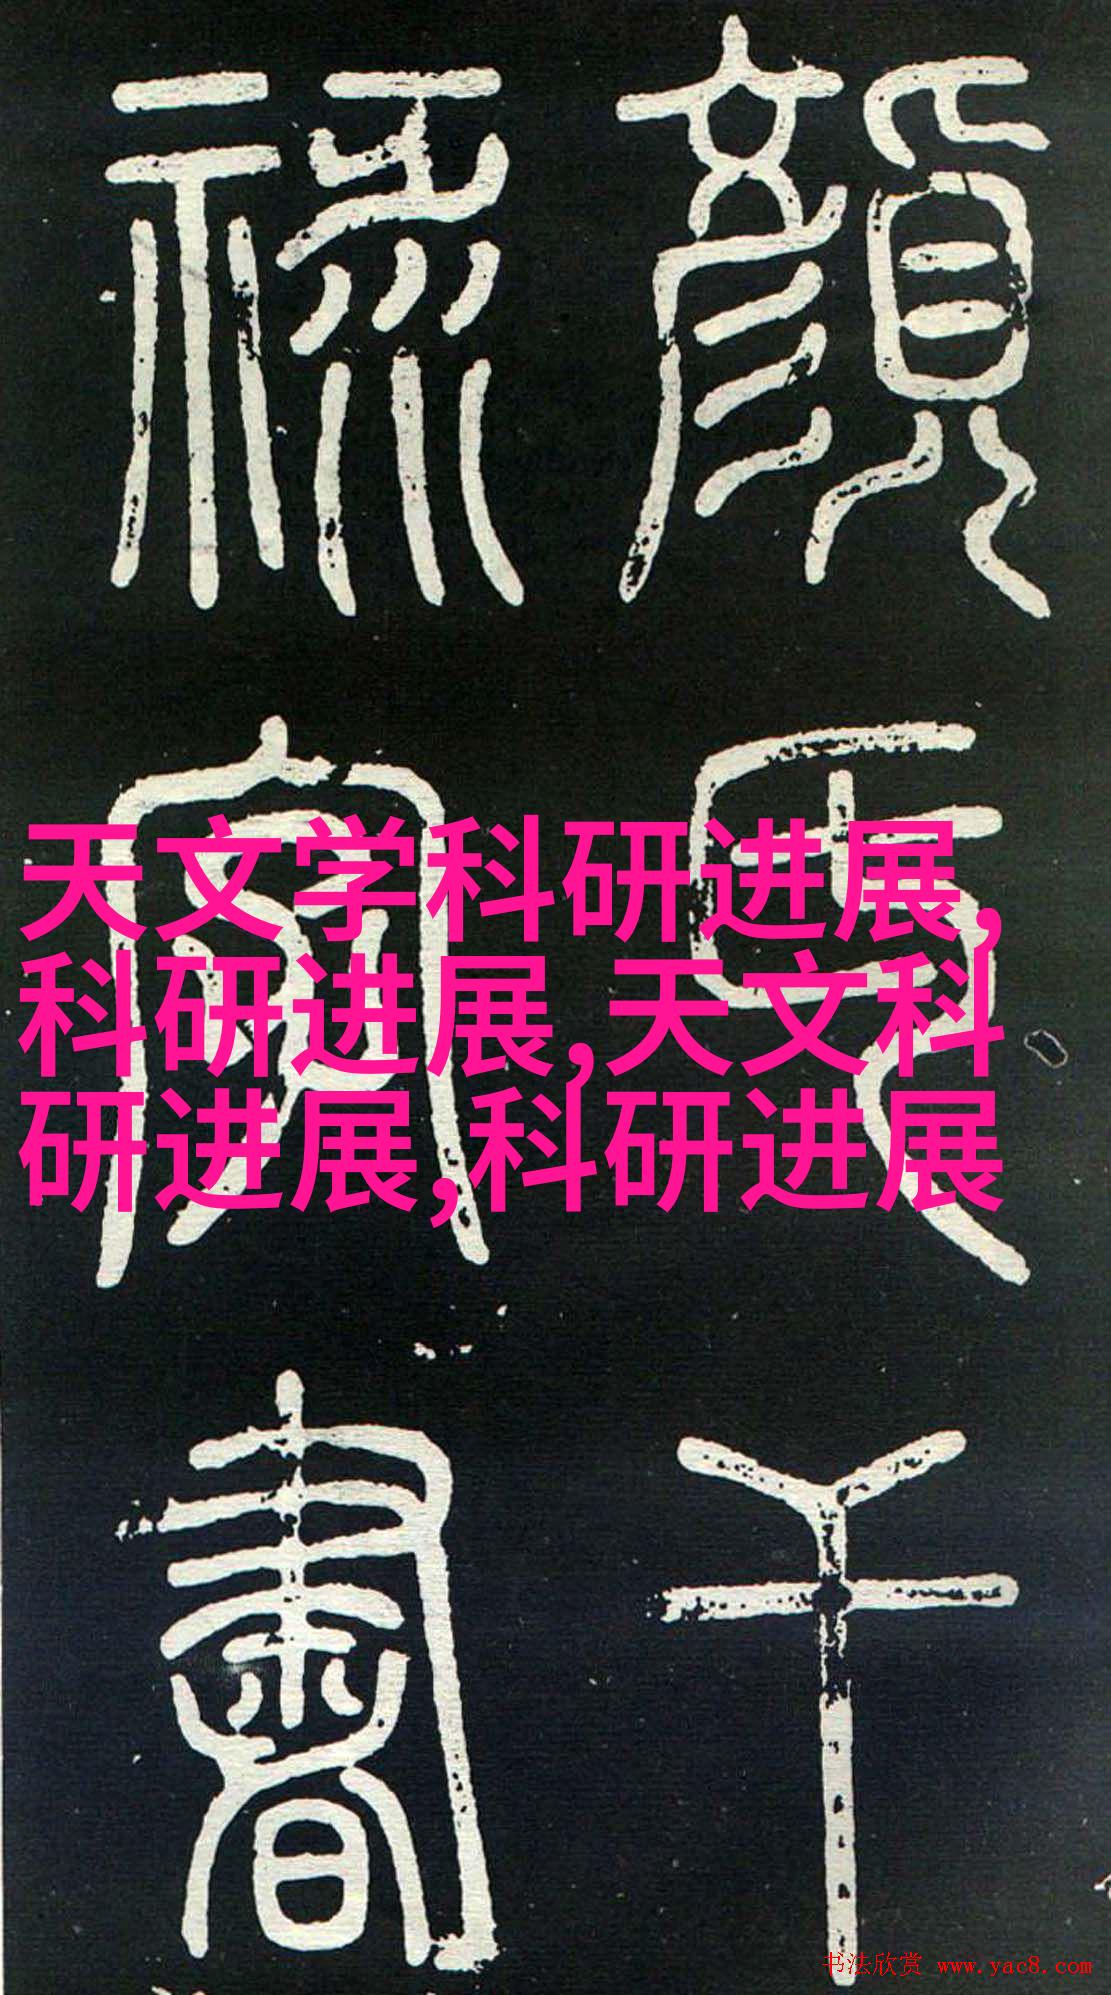 顏氏干
祿字書
天文学科研进展,
科研进展,天文科
研进展,科研进展
书法欣赏 www.yac8.com